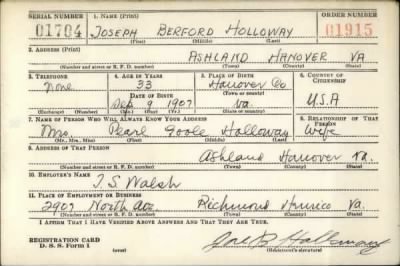 SERIAL NUMBER 1. NAME (Print) ORDER NUMBER
01704 JOSEPH BERFORD HOLLOWAY 01915
(First) (Middle) (Last)
2. ADDRESS (Print)
ASHLAND HANOVER VA
(Number and street or R. F. D. number) (Town) (County) (State)
3. TELEPHONE 4. AGE IN YEARS 5. PLACE OF BIRTH 6. COUNTRY OF CITIZENSHIP
None 33 Hanover Co
DATE OF BIRTH (Town or county)
Sep 9 1907 Va. U.S.A
(Exchange) (Number) (Mo.) (Day) (Yr.) (State or country)
7. NAME OF PERSON WHO WILL ALWAYS KNOW YOUR ADDRESS 8. RELATIONSHIP OF THAT PERSON
Mrs. Pearl Holloway Wife
(Mr., Mrs., Miss) (First) (Middle) (Last)
9. ADDRESS OF THAT PERSON
Ashland Hanover Va.
(Number and street or R. F. D. number) (Town) (County) (State)
10. EMPLOYER'S NAME
T. S. Walsh
11. PLACE OF EMPLOYMENT OR BUSINESS
2907 North Ave Richmond Henrico Va.
(Number and street or R. F. D. number) (Town) (County) (State)
I AFFIRM THAT I HAVE VERIFIED ABOVE ANSWERS AND THAT THEY ARE TRUE.
REGISTRATION CARD
D. S. S. Form 1 Holloway
(Registrant's signature)